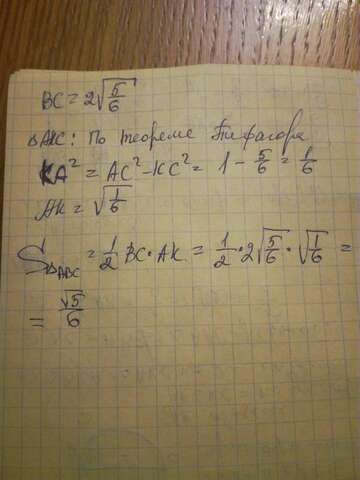 BC = 2√(5/6)
△AKC: По теореме Пифагора
KA² = AC² - KC² = 1 - 5/6 = 1/6
AK = √(1/6)
S△ABC = 1/2 BC · AK = 1/2 · 2√(5/6) · √(1/6) =
= √5/6